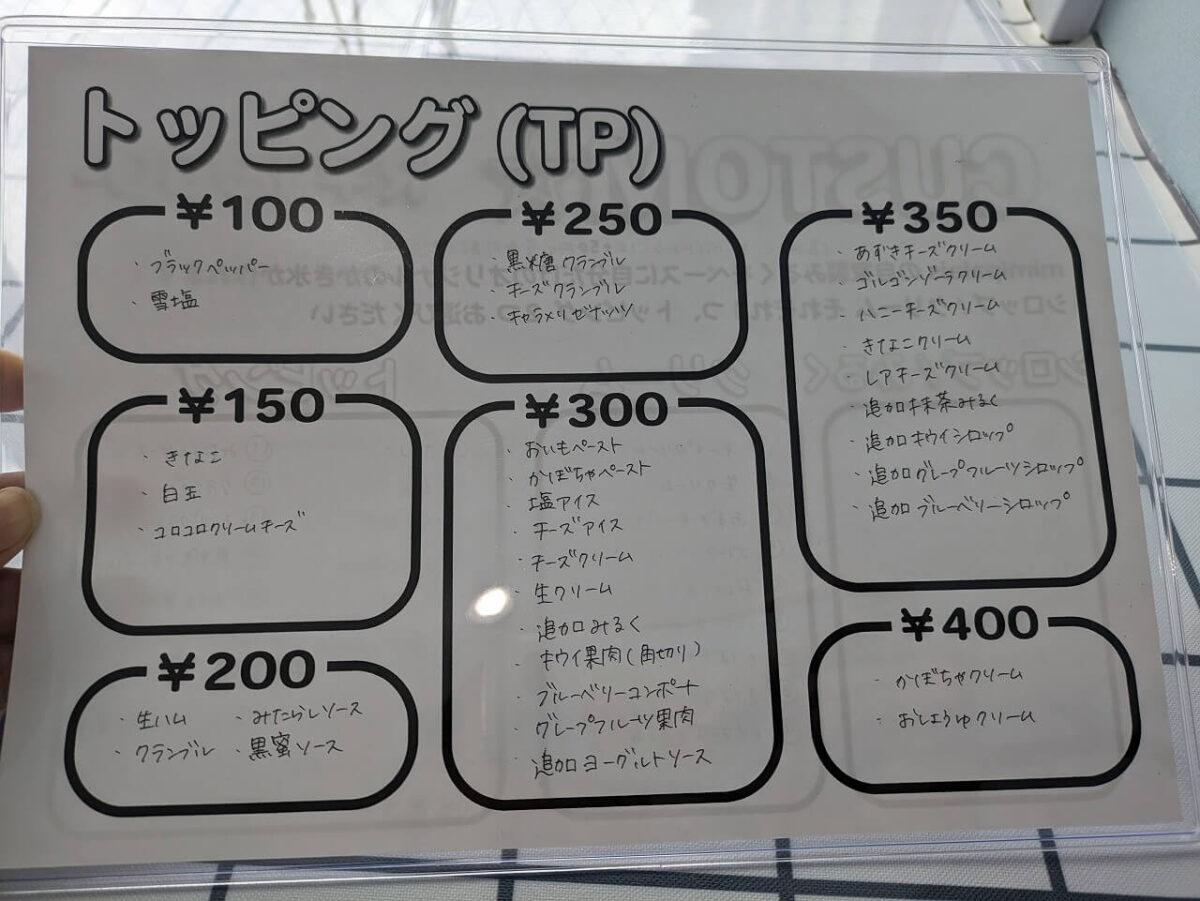 トッピング(TP)
¥100
・ブラックペッパー
・雪塩
¥150
・きなこ
・白玉
・コロコロクリームチーズ
¥200
・生ハム ・みたらしソース
・クランブル ・黒蜜ソース
¥250
・黒糖クランブル
・チーズクランブル
・キャラメリゼナッツ
¥300
・おいもペースト
・かぼちゃペースト
・塩アイス
・チーズアイス
・チーズクリーム
・生クリーム
・追加みるく
・キウイ果肉(角切り)
・ブルーベリーコンポート
・グレープフルーツ果肉
・追加ヨーグルトソース
¥350
・あずきチーズクリーム
・ゴルゴンゾーラクリーム
・ハニーチーズクリーム
・きなこクリーム
・レアチーズクリーム
・追加抹茶みるく
・追加キウイシロップ
・追加グレープフルーツシロップ
・追加ブルーベリーシロップ
¥400
・かぼちゃクリーム
・おしょうゆクリーム